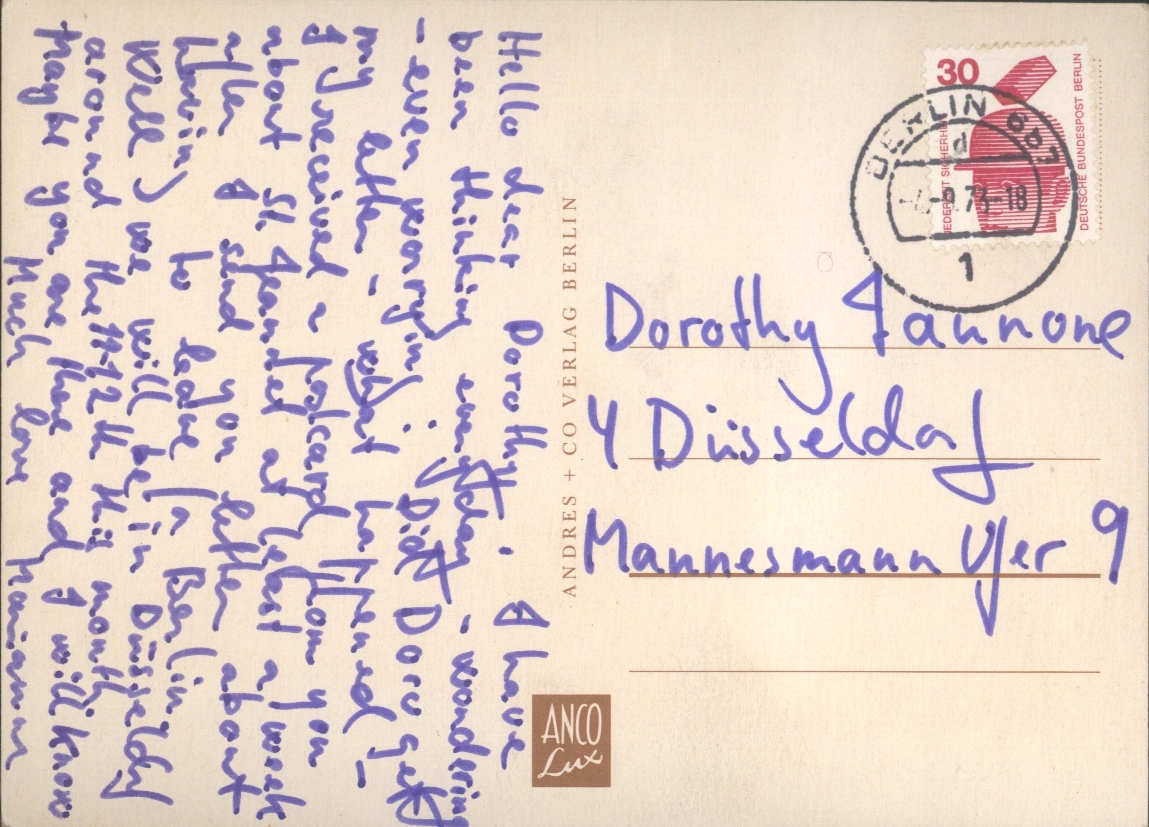 Hello dear Dorothy. I have
been thinking everyday - wondering
- even worrying: Did Doro get
my letter - what happened -
I received a postcard from you
about St. Jeannet at least a week
after I send you letter about
to leave Berlin.
Well) we will be in Düsseldorf
around the 11-12th this month
Maybe you are there and I will know
Much love
ANDRES + CO VERLAG BERLIN
ANCO
Lux
30
DEUTSCHE BUNDESPOST BERLIN
BERLIN
d
73-18
1
Dorothy Iannone
4 Düsseldorf
Mannesmann Ufer 9